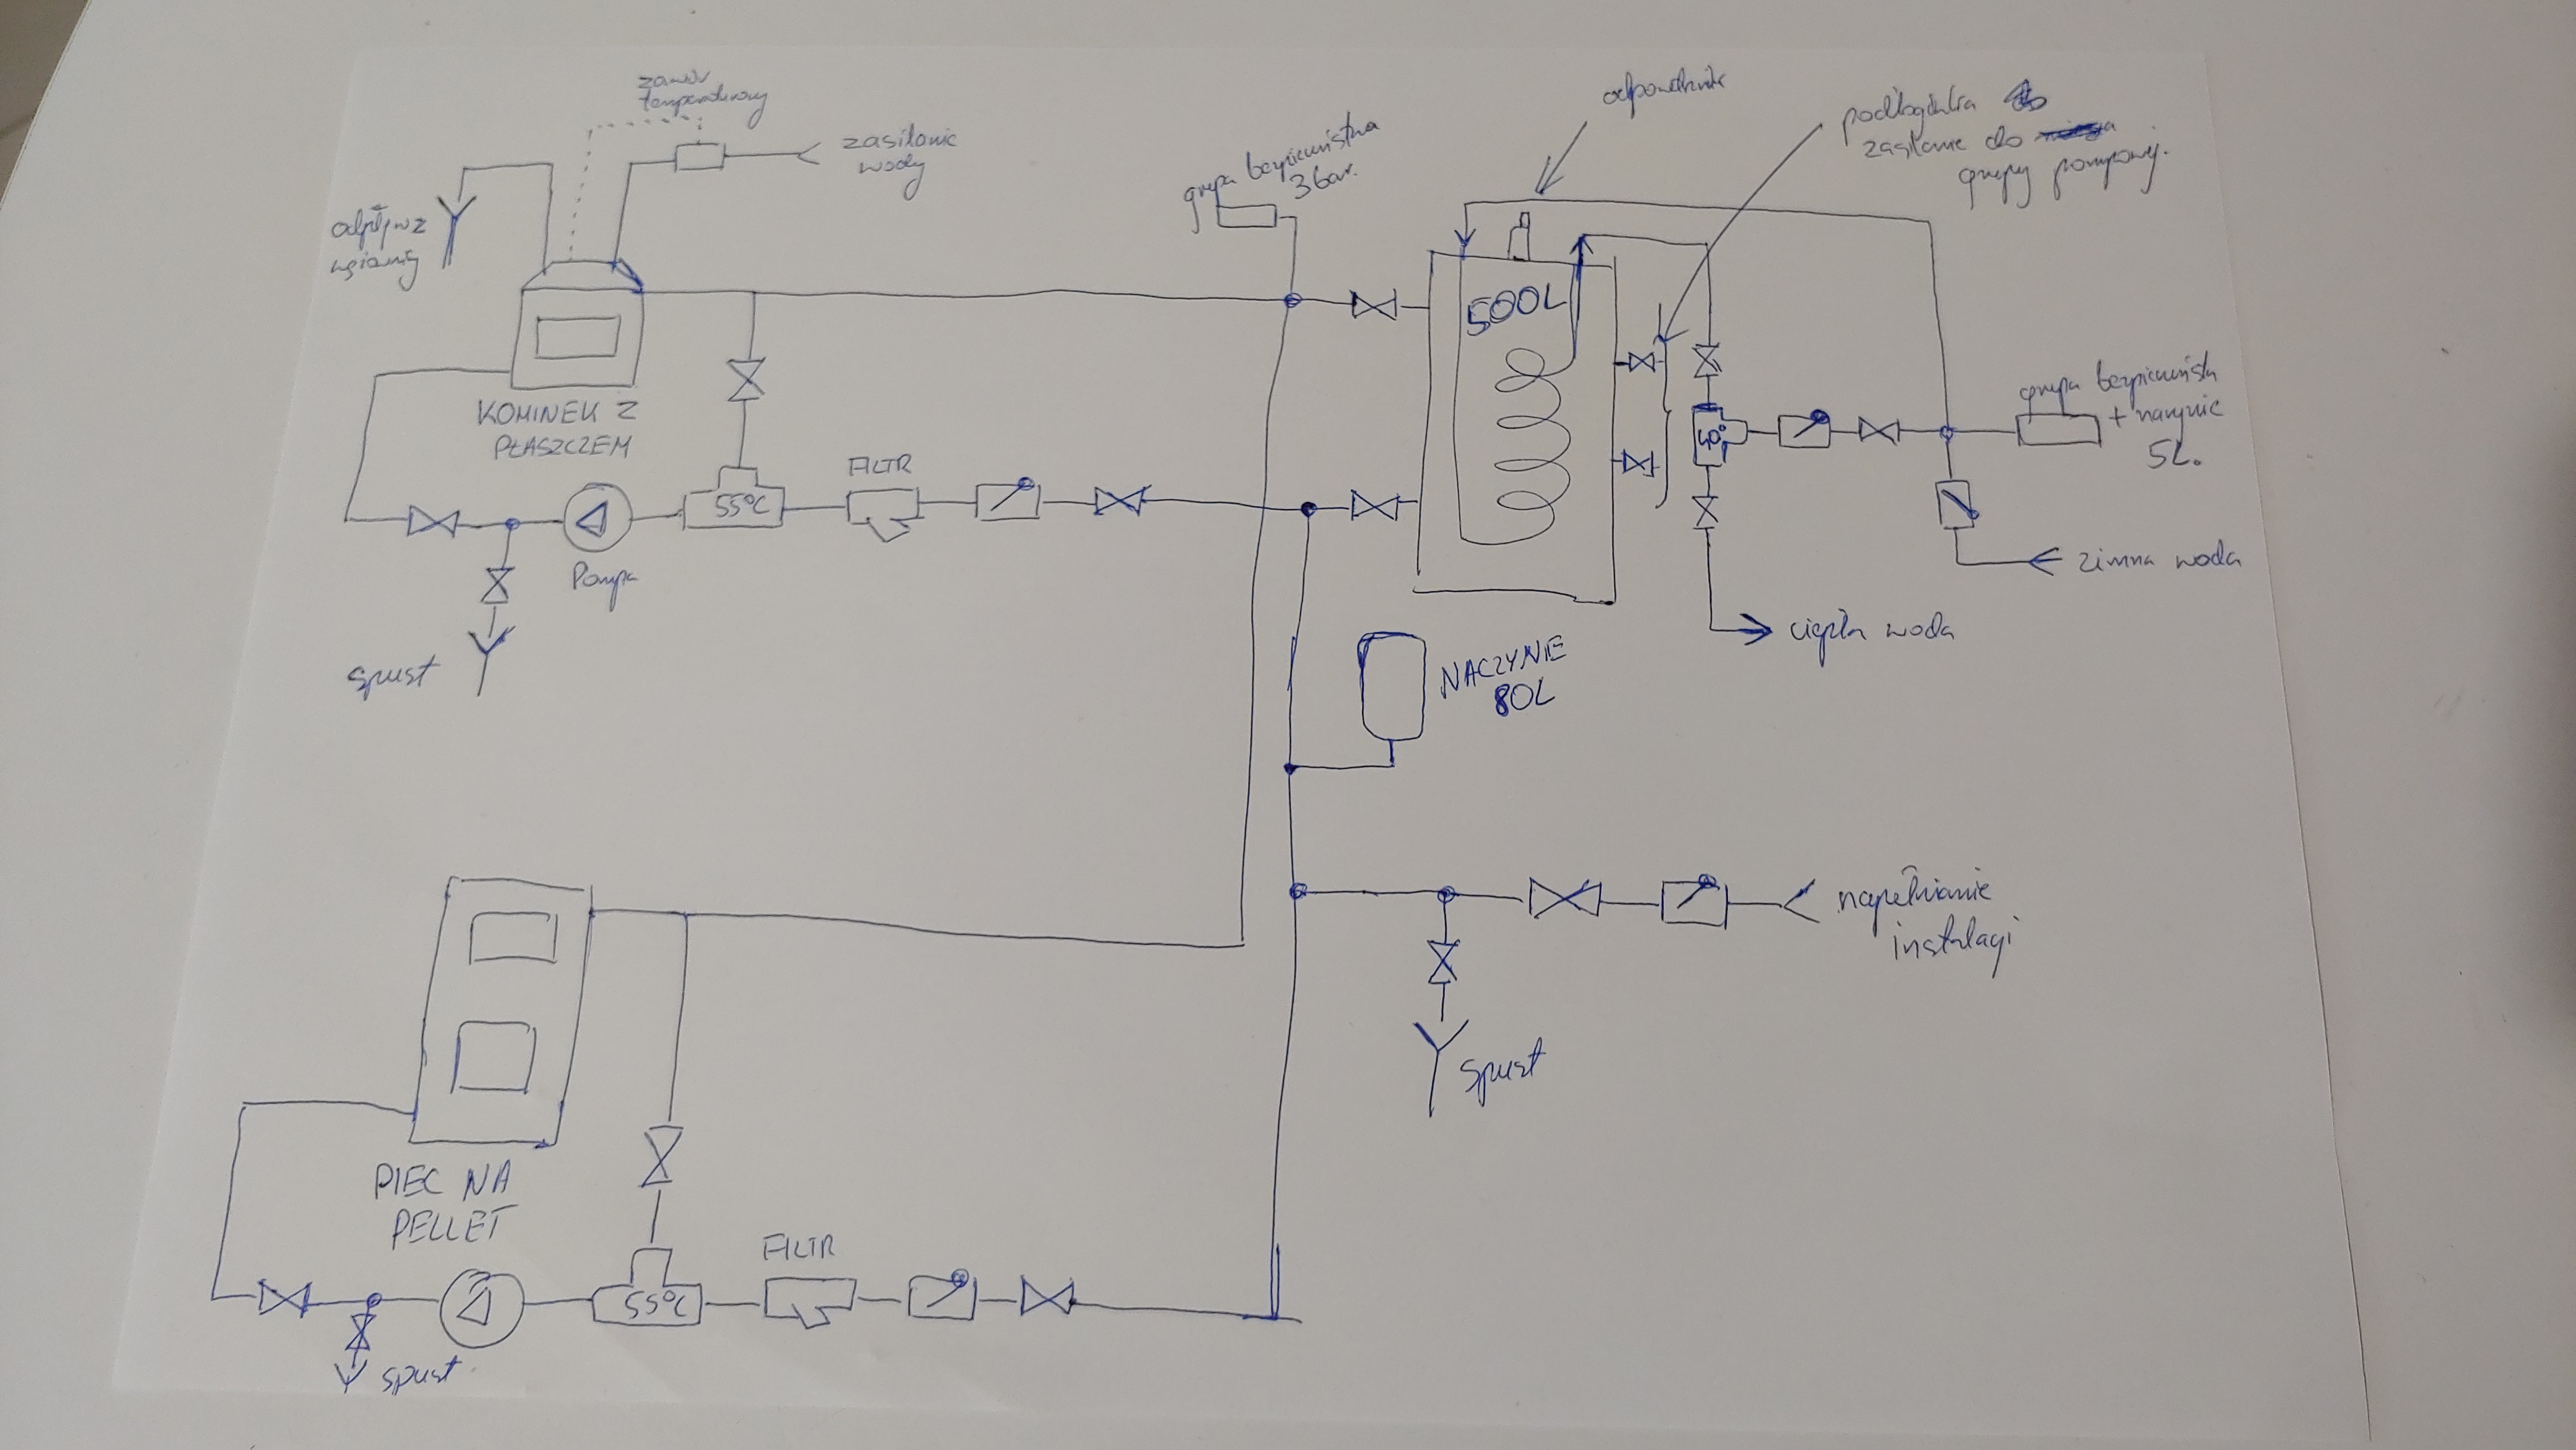 zawór
temperaturowy
zasilanie
wody
odpływ z
wężownicy
KOMINEK Z
PŁASZCZEM
55°C
FILTR
Pompa
spust
grupa bezpieczeństwa
3 bar.
odpowietrznik
podłogówka
zasilanie do
grupy pompowej.
500L
grupa bezpieczeństa
+ naczynie
5L.
zimna woda
ciepła woda
NACZYNIE
80L
napełnianie
instalacji
spust
PIEC NA
PELLET
55°C
FILTR
spust